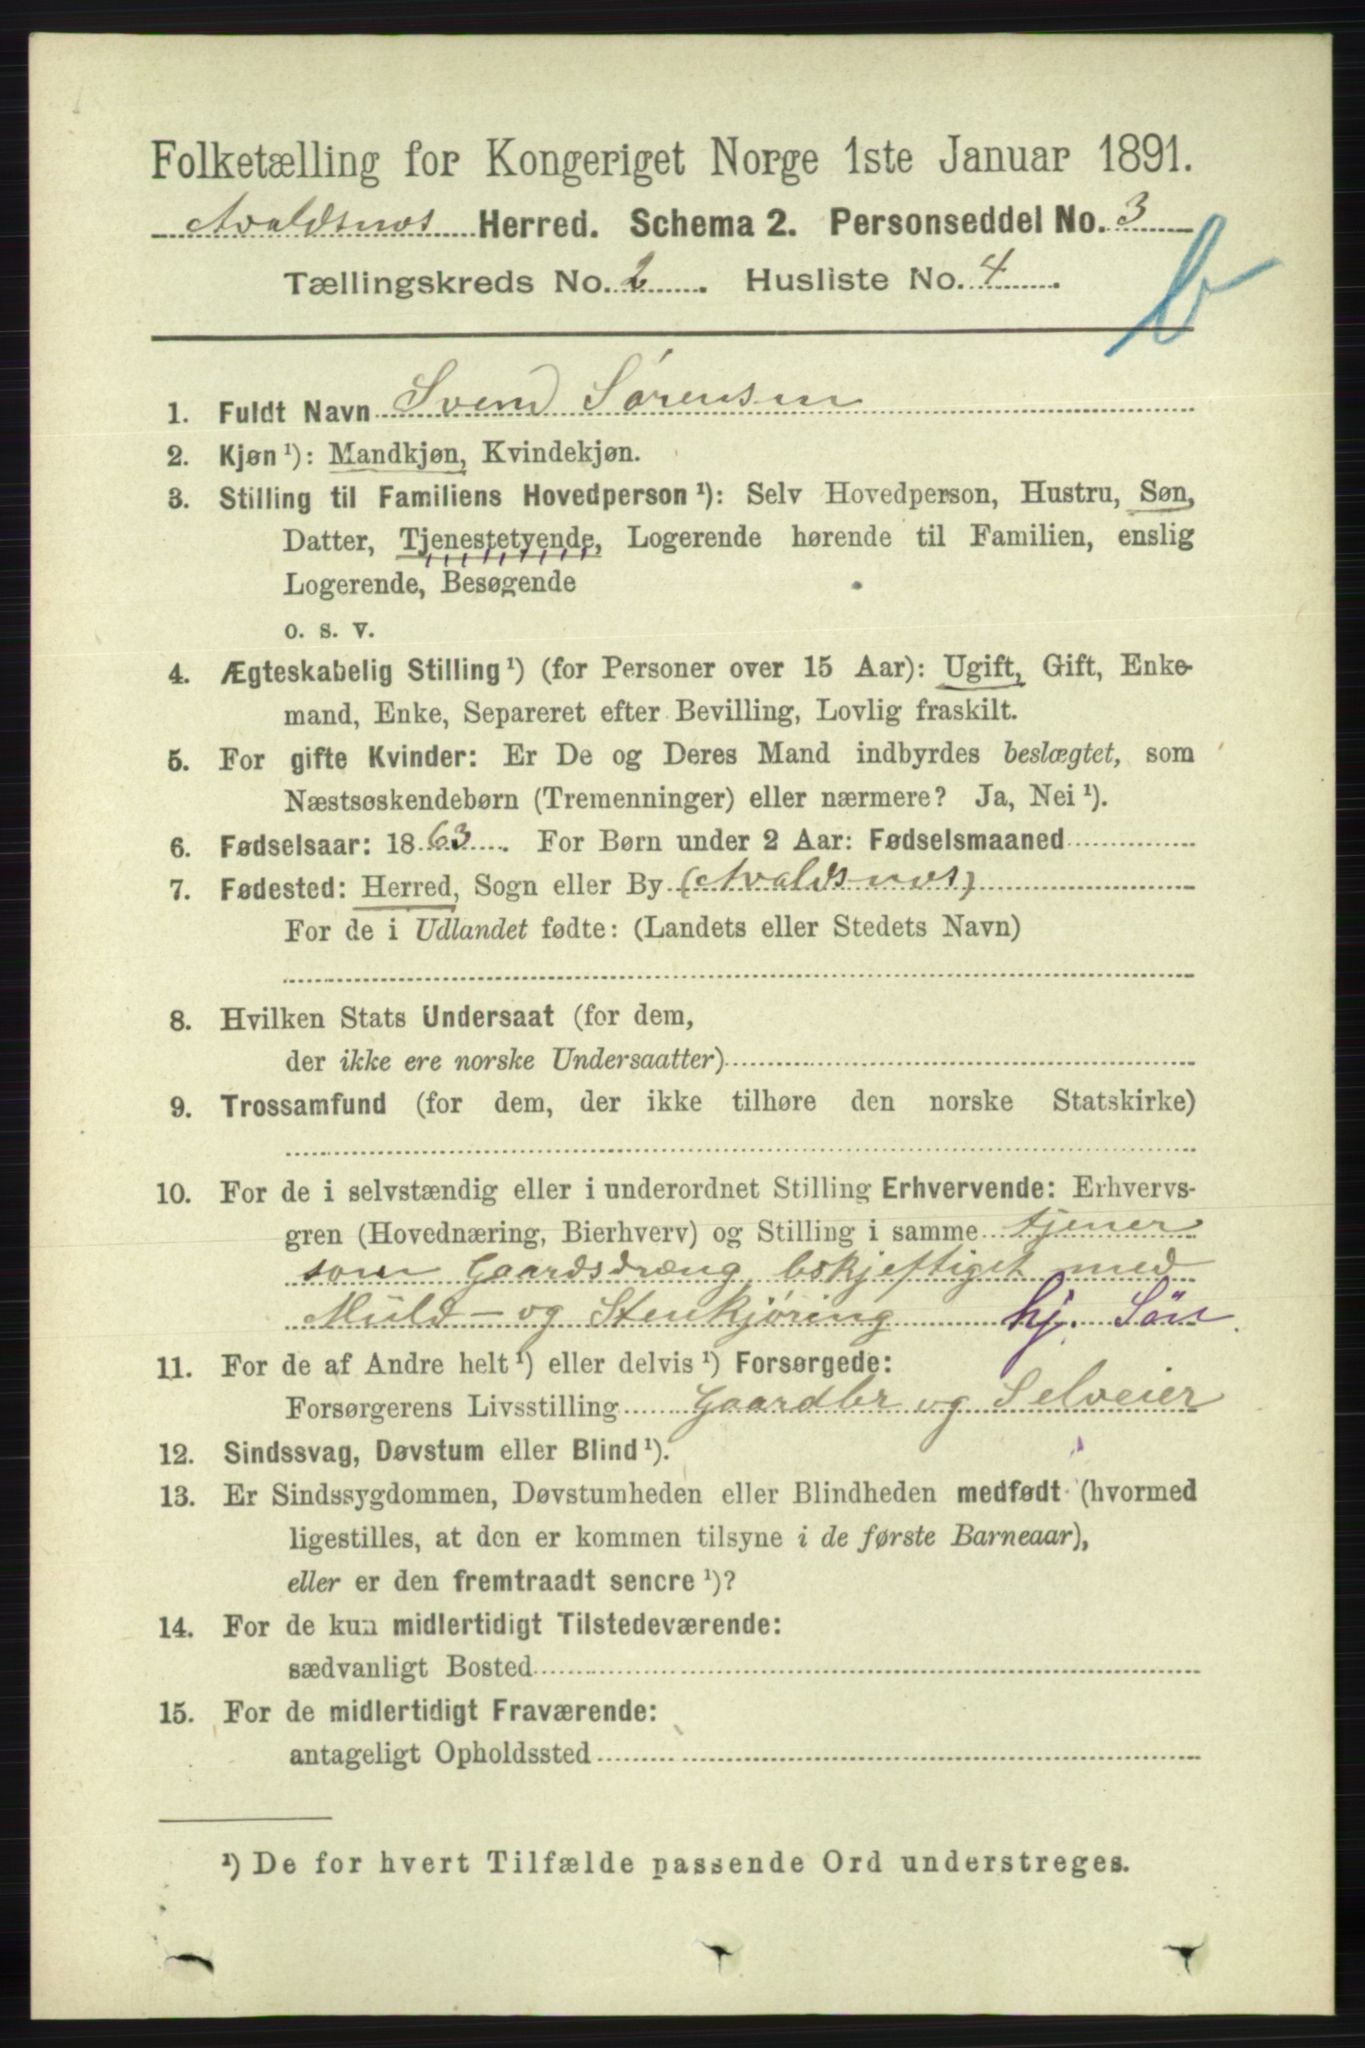 Folketælling for Kongeriget Norge 1ste Januar 1891.
Avaldsnes Herred. Schema 2. Personseddel No. 3
Tællingskreds No. 2. Husliste No. 4.
b
1. Fuldt Navn Svend Sørensen
2. Kjøn ¹): Mandkjøn, Kvindekjøn.
3. Stilling til Familiens Hovedperson ¹): Selv Hovedperson, Hustru, Søn,
Datter, Tjenestetyende, Logerende hørende til Familien, enslig
Logerende, Besøgende
o. s. v.
4. Ægteskabelig Stilling ¹) (for Personer over 15 Aar): Ugift, Gift, Enke-
mand, Enke, Separeret efter Bevilling, Lovlig fraskilt.
5. For gifte Kvinder: Er De og Deres Mand indbyrdes beslægtet, som
Næstsøskendebørn (Tremenninger) eller nærmere? Ja, Nei ¹).
6. Fødselsaar: 1863. For Børn under 2 Aar: Fødselsmaaned
7. Fødested: Herred, Sogn eller By (Avaldsnes)
For de i Udlandet fødte: (Landets eller Stedets Navn)
8. Hvilken Stats Undersaat (for dem,
der ikke ere norske Undersaatter)
9. Trossamfund (for dem, der ikke tilhøre den norske Statskirke)
10. For de i selvstændig eller i underordnet Stilling Erhvervende: Erhvervs-
gren (Hovednæring, Bierhverv) og Stilling i samme tjener
som Gaardsdræng beskjeftiget med
Muld- og Stenkjøring hj. Søn.
11. For de af Andre helt ¹) eller delvis ¹) Forsørgede:
Forsørgerens Livsstilling Gaardbr og Selveier
12. Sindssvag, Døvstum eller Blind ¹).
13. Er Sindssygdommen, Døvstumheden eller Blindheden medfødt (hvormed
ligestilles, at den er kommen tilsyne i de første Barneaar),
eller er den fremtraadt senere ¹)?
14. For de kun midlertidigt Tilstedeværende:
sædvanligt Bosted
15. For de midlertidigt Fraværende:
antageligt Opholdssted
¹) De for hvert Tilfælde passende Ord understreges.